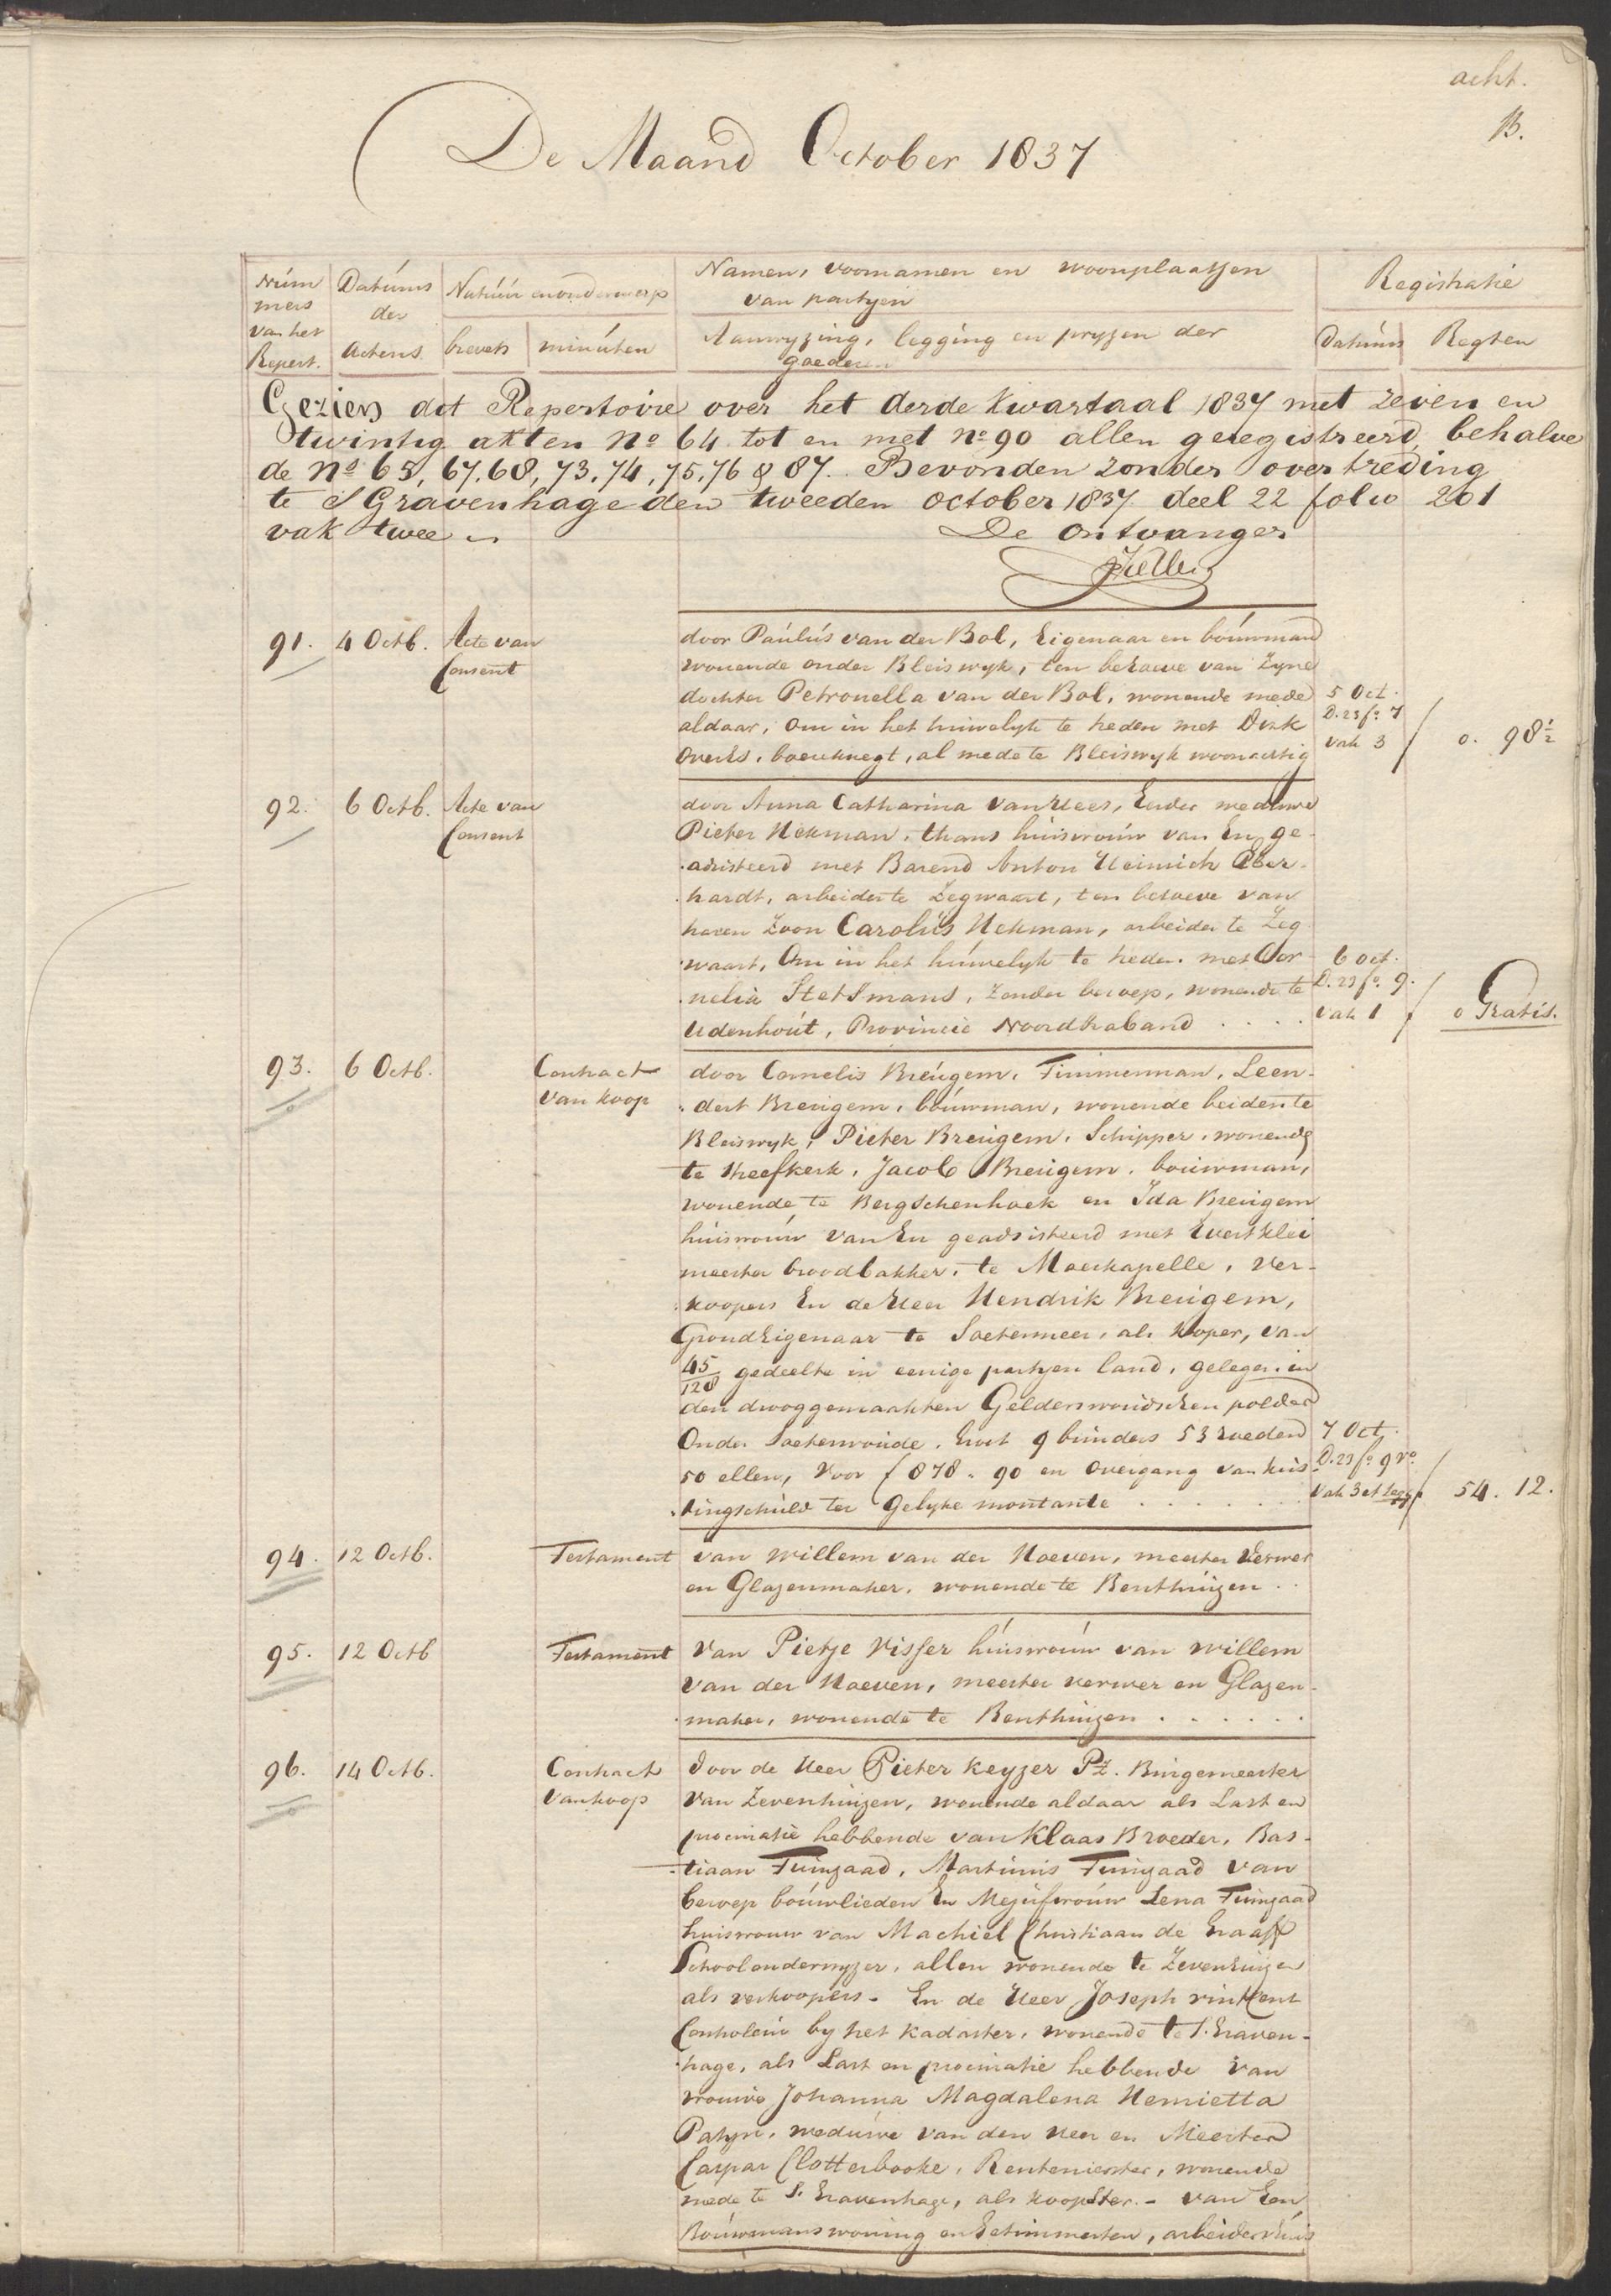 acht.
B.
De Maand October 1837
Num
mers
van het
Repert.
Datúms
der
Actens
Natúúr en onderwerp
brevets
minúten
Namen, voornamen en woonplaatsen
van partyen
Aanwyzing, legging en pryzen der
goederen
Registratie
Datúms
Regten
Gezien dit Repertoire over het derde kwartaal 1837 met zeven en
twintig akten No 64 tot en met no 90 allen geregistreerd behalve
de Nos 65, 67, 68, 73, 74, 75, 76 & 87. Bevonden zonder overtreding
te S Gravenhage den tweeden october 1837 deel 22 folio 201
vak twee
De Ontvanger
91.
4 Octb.
Acte van
Consent
door Paúlús van der Bol, Eigenaar en boúwman
wonende onder Bleiswyk, ten behoeve van Zyne
dochter Petronella van der Bol, wonende mede
aldaar, om in het húwelyk te treden met Dirk
Overes, boereknegt, al mede te Bleiswyk woonachtig
5 Oct.
D. 23 fo 7
vak 3
0. 98½
92.
6 Octb.
Acte van
Consent
door Anna Catharina van Hees, Eerder weduwe
Pieter Hekman, thans húisvroúw van En ge-
adsisteerd met Barend Anton Heinrich Eber-
hardt, arbeider te Zegwaart, ten behoeve van
haren Zoon Carolús Hekman, arbeider te Zeg
waart, Om in het húwelyk te treden met Cor-
nelia Stetsmans, Zonder beroep, wonende te
Udenhoút, Provincie Noordbraband . . . .
6 oct.
D. 23 fo 9.
vak 1
0 Gratis.
93.
6 Octb.
Contract
van koop
door Cornelis Breúgem, Timmerman, Leen-
dert Breugem, boúwman, wonende beiden te
Bleiswyk, Pieter Breugem, Schipper, wonende
te Streefkerk, Jacob Breúgem, bouwman,
wonende te Bergschenhoek en Ida Breugem
húisvroúw van En geadsisteerd met Evert Klei
meester broodbakker, te Moerkapelle, Ver-
koopers En de Heer Hendrik Breugem,
Grond Eigenaar te Soetermeer, als Koper, van
45/128 gedeelte in eenige partyen land, gelegen in
den drooggemaakten Gelderswoudschen polder
Onder Soeterwoude, Groot 9 bunders 53 roeden
50 ellen, voor f 878. 90 en overgang van kus
tingschuld ter Gelyke montante . . . . . . .
7 Oct.
D. 23 fo 9 vo
Vak 3 et seqq
54. 12.
94.
12 Octb.
Testament
van Willem van der Hoeven, meester Verwer
en Glazenmaker, wonende te Benthúizen . .
95.
12 Octb
Testament
Van Pietje Visser húisvroúw van Willem
van der Hoeven, meester verwer en Glazen-
maker, wonende te Benthuizen . . . . . .
96.
14 Octb.
Contract
van koop
door de Heer Pieter Keyzer Pz. Burgemeester
van Zevenhuizen, wonende aldaar als Last en
procuratie hebbende van Klaas Broeder, Bas-
tiaan Tuingaad, Martinus Tuingaad van
beroep boúwlieden En Mejufvroúw Lena Tuingaad
huisvrouw van Machiel Christiaan de Graaff
Schoolonderwyzer, allen wonende te Zevenhuizen
als verkoopers - En de Heer Joseph Vinkent
Controleur by het Kadaster, wonende te S. Graven-
hage, als Last en procuratie hebbende van
vrouwe Johanna Magdalena Henrietta
Patyn, weduwe van den Heer en Meester
Caspar Clotterbooke, Rentenierster, wonende
mede te S. Gravenhage, als koopster. - van Een
Boúwmanswoning en Getimmerten, arbeidershuis